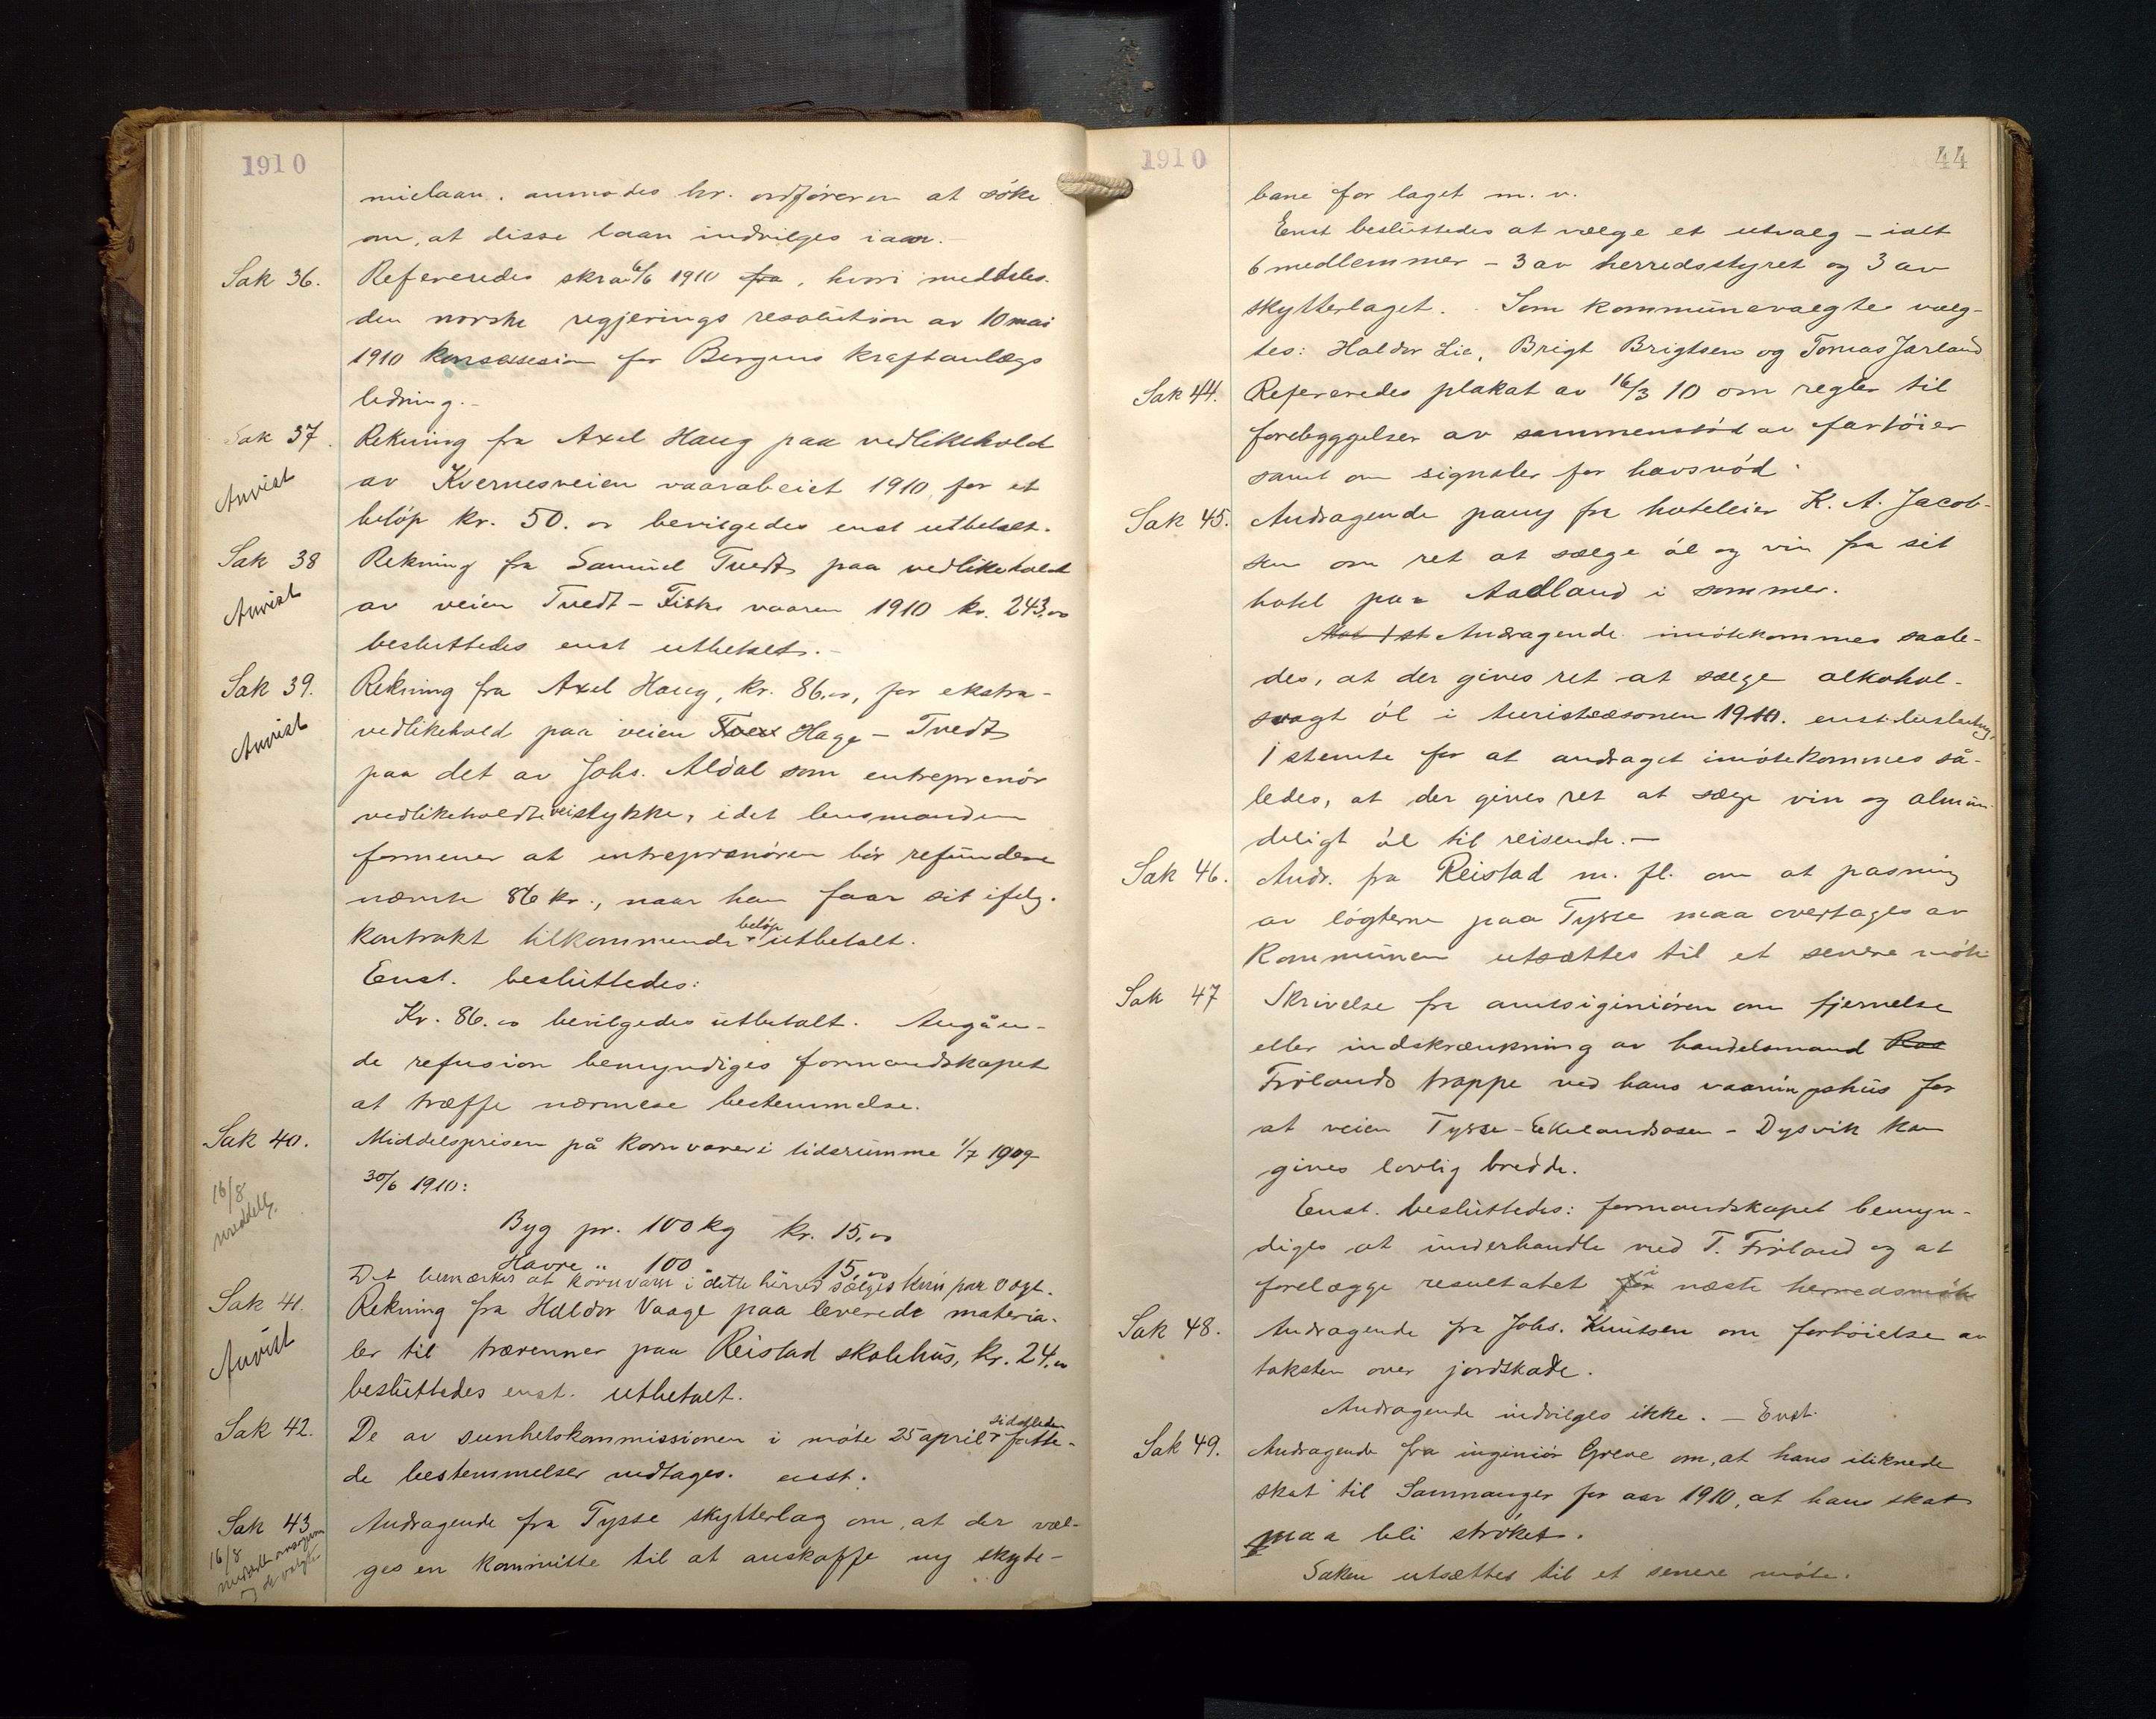 1910
mielaan. anmodes hr. ordføreren at søke
om, at disse laan indvilges iaar.-
Sak 36.
Refereredes skr av 6/6 1910 fra, hvori meddeles.
den norske regjerings resolution av 10 mai
1910 konsesssesion for Bergens kraftanlægs
ledning.-
Sak 37.
Rekning fra Axel Haug paa vedlikehold
Anvist
av Kvernesveien vaararbeiet 1910, for et
beløp kr. 50.00 bevilgedes enst utbetalt.
Sak 38
Rekning fra Samuel Tvedt paa vedlikehold
Anvist
av veien Tvedt - Fiske vaaren 1910 kr. 243.00
besluttedes enst utbetalt.-
Sak 39.
Rekning fra Axel Haug, kr. 86.00, for ekstra-
Anvist
vedlikehold paa veien Tved Hage - Tvedt
paa det av Johs. Aldal som entreprenør
vedlikeholdte veistykke, idet lensmanden
formener at entreprenøren bør refundere
nævnte 86 kr., naar han faar sit ifølg.
kontrakt tilkommende beløp utbetalt.
Enst. besluttedes:
Kr. 86.00 bevilgedes utbetalt. Angåen-
de refusion bemyndiges formandskapet
at træffe nærmese bestemmelse.
Sak 40.
Middelsprisen på kornvarer i tidsrumme 1/7 1909
16/8
meddelt.
30/6 1910:
Byg pr. 100 kg kr. 15.00
Havre " 100 " 15.00
Det bemærkes at kornvarer i dette herred sælges kun paa vægt.
Sak 41.
Rekning fra Haldor Vaage paa leverede materia-
Anvist
ler til trærenner paa Reistad skolehus, kr. 24.00
besluttedes enst. utbetalt.
Sak 42.
De av sunhetskommissionen i møte 25 april sidstleden fatte-
de bestemmelser vedtages. enst.
Sak 43
Andragende fra Tysse skytterlag om, at der væl-
16/8
og de valgte
ges en kommitte til at anskaffe ny skyte-
1910
44
bane for laget m. v.
Enst besluttedes at vælge et utvalg - ialt
6 medlemmer - 3 av herredsstyret og 3 av
skytterlaget. Som kommunevalgte vælg-
tes: Haldor Lie, Brigt Brigtsen og Tomas Jarland
Sak 44.
Refereredes plakat av 16/3 10 om regler til
forebyggelser av sammenstød av fartøier
samt om signaler for havsnød.
Sak 45.
Andragende paany fra hoteleier K. A. Jacob-
sen om ret at sælge øl og vin fra sit
hotel paa Aadland i sommer.
Mot 1 st Andragende imøtekommes saale-
des, at der gives ret at sælge alkohol-
svagt øl i turistsæsonen 1910. enst. beslutning.
1 stemte for at andraget imøtekommes så-
ledes, at der gives ret at sælge vin og almin-
deligt øl til reisende.-
Sak 46.
Andr. fra Reistad m. fl. om at pasning
av løgterne paa Tysse maa overtages av
Kommunen utsættes til et senere møte
Sak 47
Skrivelse fra amtsigeniøren om fjernelse
eller indskrænkning av handelsmand
Frølands trappe ved hans vaaningshus for
at veien Tysse - Eikelandsosen - Dysvik kan
gives lovlig bredde.
Enst. besluttedes: formandskapet bemyn-
diges at underhandle med T. Frøland og at
forelægge resultatet for i næste herredsmøte
Sak 48.
Andragende fra Johs. Knutsen om forhøielse av
taksten over jordskade.
Andragende indvilges ikke. - Enst.
Sak 49.
Andragende fra ingeniør Greve om, at hans iliknede
skat til Samnanger for aar 1910, at hans skat
maa bli strøket.
Saken utsættes til et senere møte.